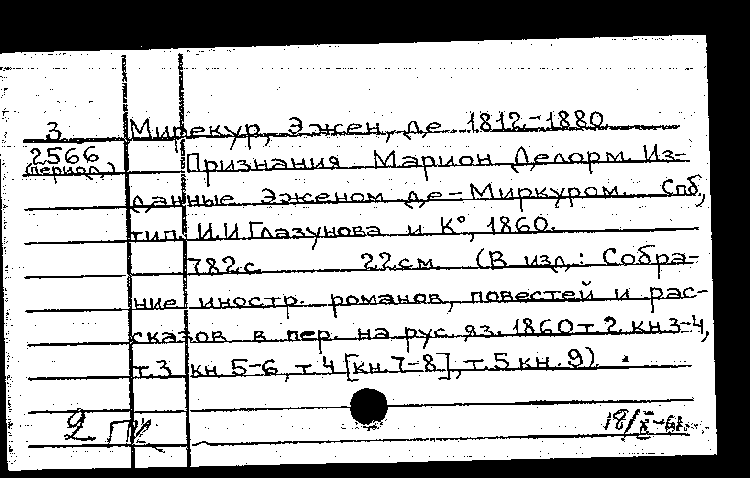 3 Мирекур, Эжен, де 1812-1880
2566 Признания Марион Делорм. Из-
(период.) данные Эженом де-Миркуром. Спб,
тип. И.И.Глазунова и К°, 1860.
782с. 22см. (В изд.: Собра-
ние иностр. романов, повестей и рас-
сказов в пер. на рус. яз. 1860 т. 2 кн 3-4,
т.3 кн 5-6, т. 4 [кн. 7-8], т. 5 кн. 9).
2 ПК 18/X-61.